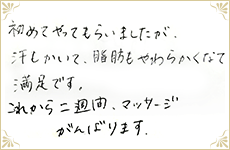 初めてやってもらいましたが、
汗もかいて、脂肪もやわらかくなて
満足です。
これから二週間、マッサージ
がんばります.